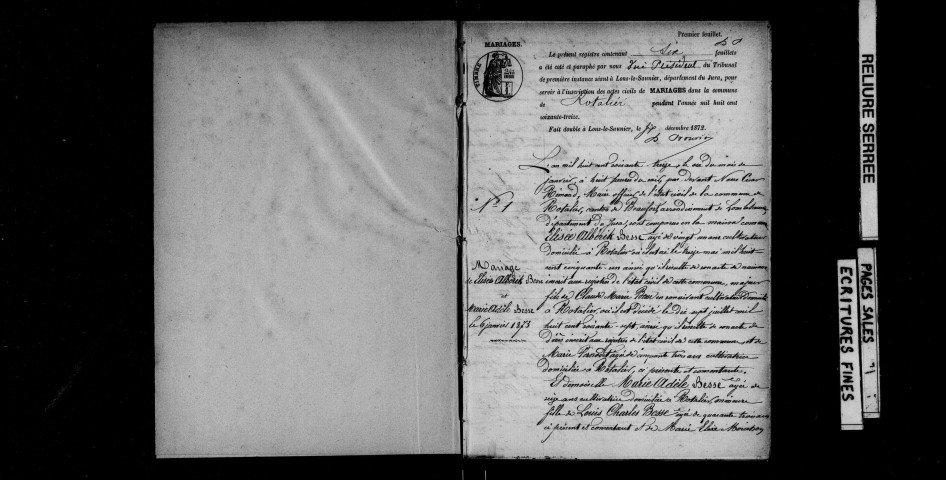 Premier feuillet.
MARIAGES.
Le présent registre contenant Six feuillets
a été coté et paraphé par nous Vice Président du Tribunal
de première instance séant à Lons-le-Saunier, département du Jura, pour
servir à l'inscription des actes civils de MARIAGES dans la commune
de Rotalier pendant l'année mil huit cent
soixante-treize.
Fait double à Lons-le-Saunier, le décembre 1872.
L'an mil huit cent soixante-treize, le six du mois de
janvier, à huit heures du soir, par devant Nous César
Rémond, Maire officier de l'état civil de la commune de
Rotalier, canton de Beaufort, arrondissement de Lons-le-Saunier
département du Jura, sont comparus en la maison commune
Elisée Albérik Besse âgé de vingt un ans cultivateur
domicilié à Rotalier où il est né le treize mai mil huit
cent cinquante-un ainsi qu'il résulte de son acte de naissance
inscrit aux registres de l'état civil de cette commune, majeur
fils de Claude Marie Besse en son vivant cultivateur domicilié
à Rotalier, où il est décédé le dix sept juillet mil
huit cent soixante-sept, ainsi qu'il résulte de son acte de
décès inscrit aux registres de l'état civil de cette commune, et de
Marie âgée de cinquante trois ans cultivatrice
domiciliée à Rotalier, ci présente et consentante.
Et demoiselle Marie Adèle Besse âgée de
seize ans cultivatrice domiciliée à Rotalier, mineure
fille de Louis Charles Besse âgé de quarante trois ans
ci présent et consentant et de Marie Elisa
N° 1
Mariage
de Elisée Albérik Besse
et
Marie Adèle Besse
le 6 janvier 1873
RELIURE SERREE
PAGES SALES
ECRITURES FINES